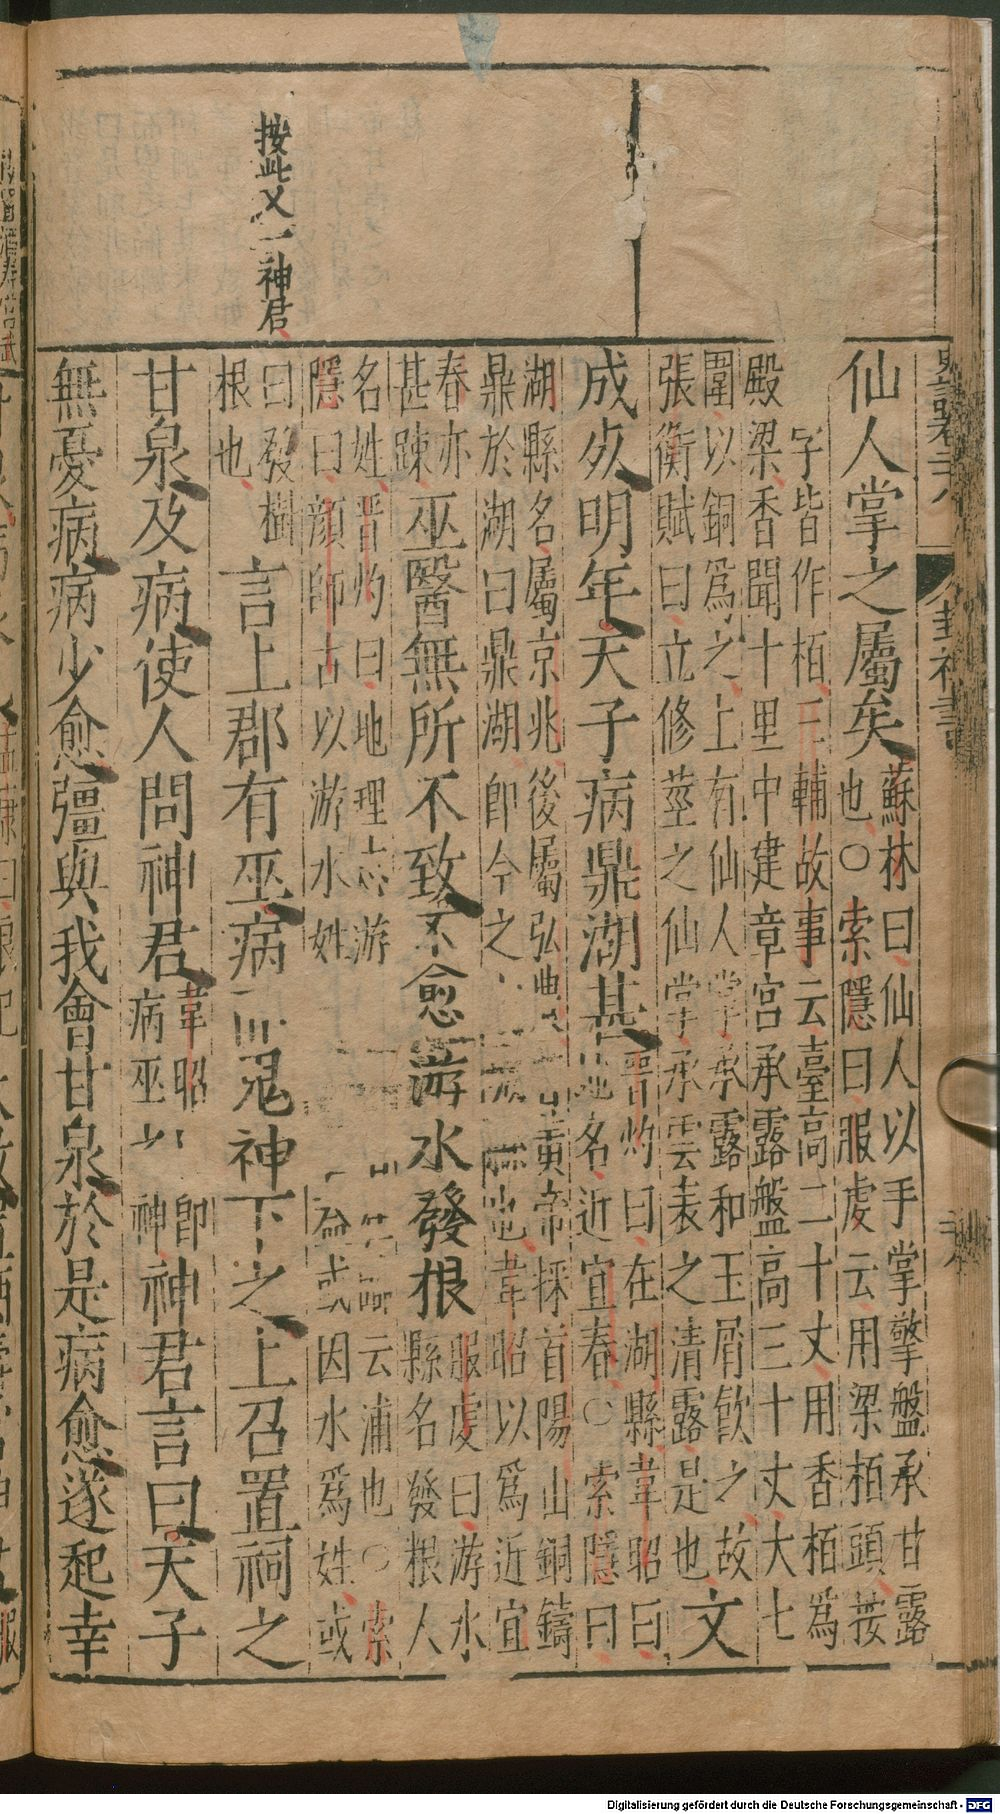 史記卷二十八 封禪書
按此又一神君
仙人掌之屬矣蘇林曰仙人以手掌擎盤承甘露也○索隱曰服虔云用梁栢頭按
字皆作栢三輔故事云臺高二十丈用香栢爲殿梁香聞十里中建章宮承露盤高三十丈大七
圍以銅爲之上有仙人掌承露和玉屑飮之故張衡賦曰立修莖之仙掌承雲表之清露是也文
成死明年天子病鼎湖甚晉灼曰在湖縣韋昭曰地名近宜春○索隱曰
湖縣名屬京兆後屬弘農黃帝採首陽山銅鑄鼎於湖曰鼎湖即今之也韋昭以爲近宜
春亦甚疎巫醫無所不致不愈游水發根服虔曰游水縣名發根人
名姓晉灼曰地理志游云浦也○索隱曰顔師古以游水姓或因水爲姓或
曰發樹根也言上郡有巫病而鬼神下之上召置祠之
甘泉及病使人問神君韋昭即病巫神神君言曰天子
無憂病病少愈彊與我會甘泉於是病愈遂起幸
Digitalisierung gefördert durch die Deutsche Forschungsgemeinschaft - DFG